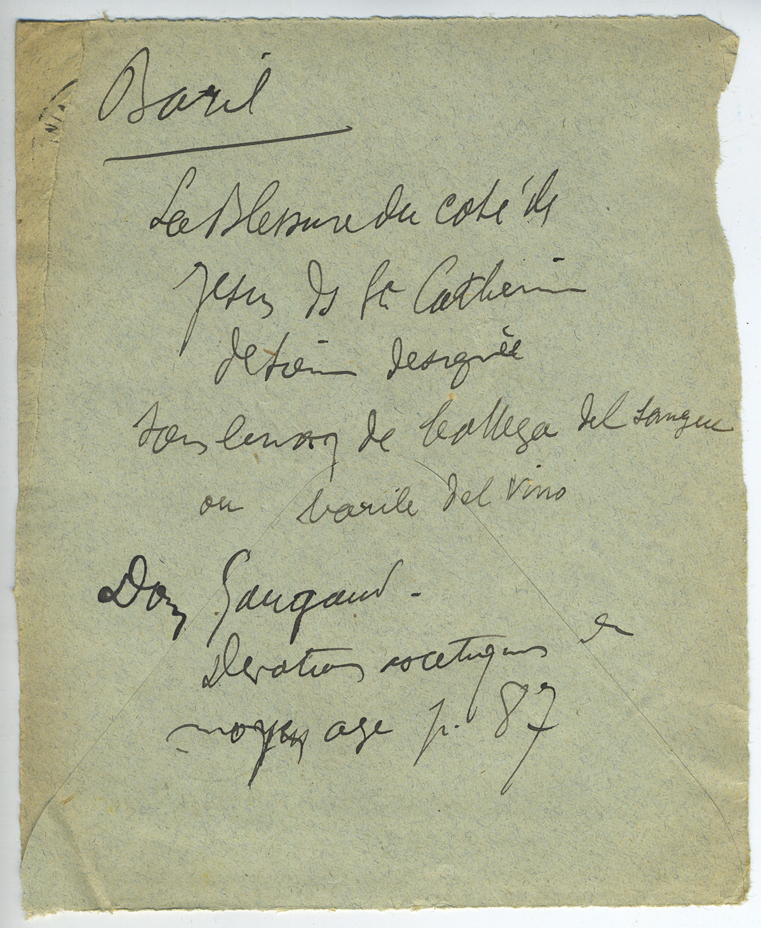 Baril
La Blessure du coté de
Jesus ds Ste Catherine
de Sienne designée
sous le nom de bottega del sangue
ou barile del vino
Dom Gougaud.
Devotions ascetiques du
moyen age p. 87